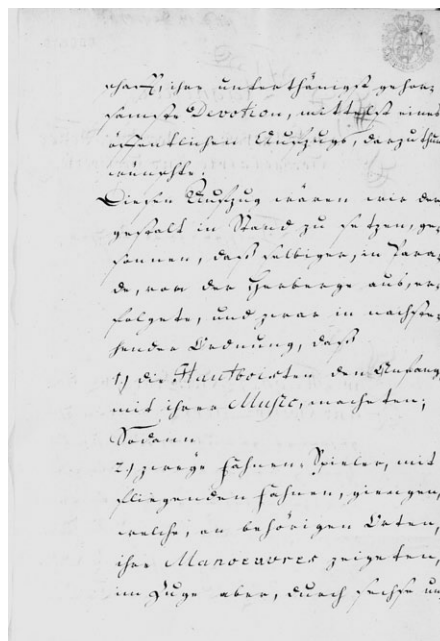 schafft, ihre unterthänigst gehor-
samste Devotion, mittelst eines
öffentlichen Aufzugs, darzuthun
wünschte.
Diesen Aufzug wären wir der-
gestalt in Stand zu setzen, ge-
sonnen, daß selbiger, in Para-
de, von der Herberge aus, er-
folgete, und zwar in nachste-
hender Ordnung, daß
1.) die Hautboisten den Anfang,
mit ihrer Music, macheten;
Sodann
2.) zweye Fahnen-Spieler, mit
fliegenden Fahnen, giengen,
welche, an behörigen Orten,
ihre Manoeuvres zeigeten,
im Zuge aber, durch sechse